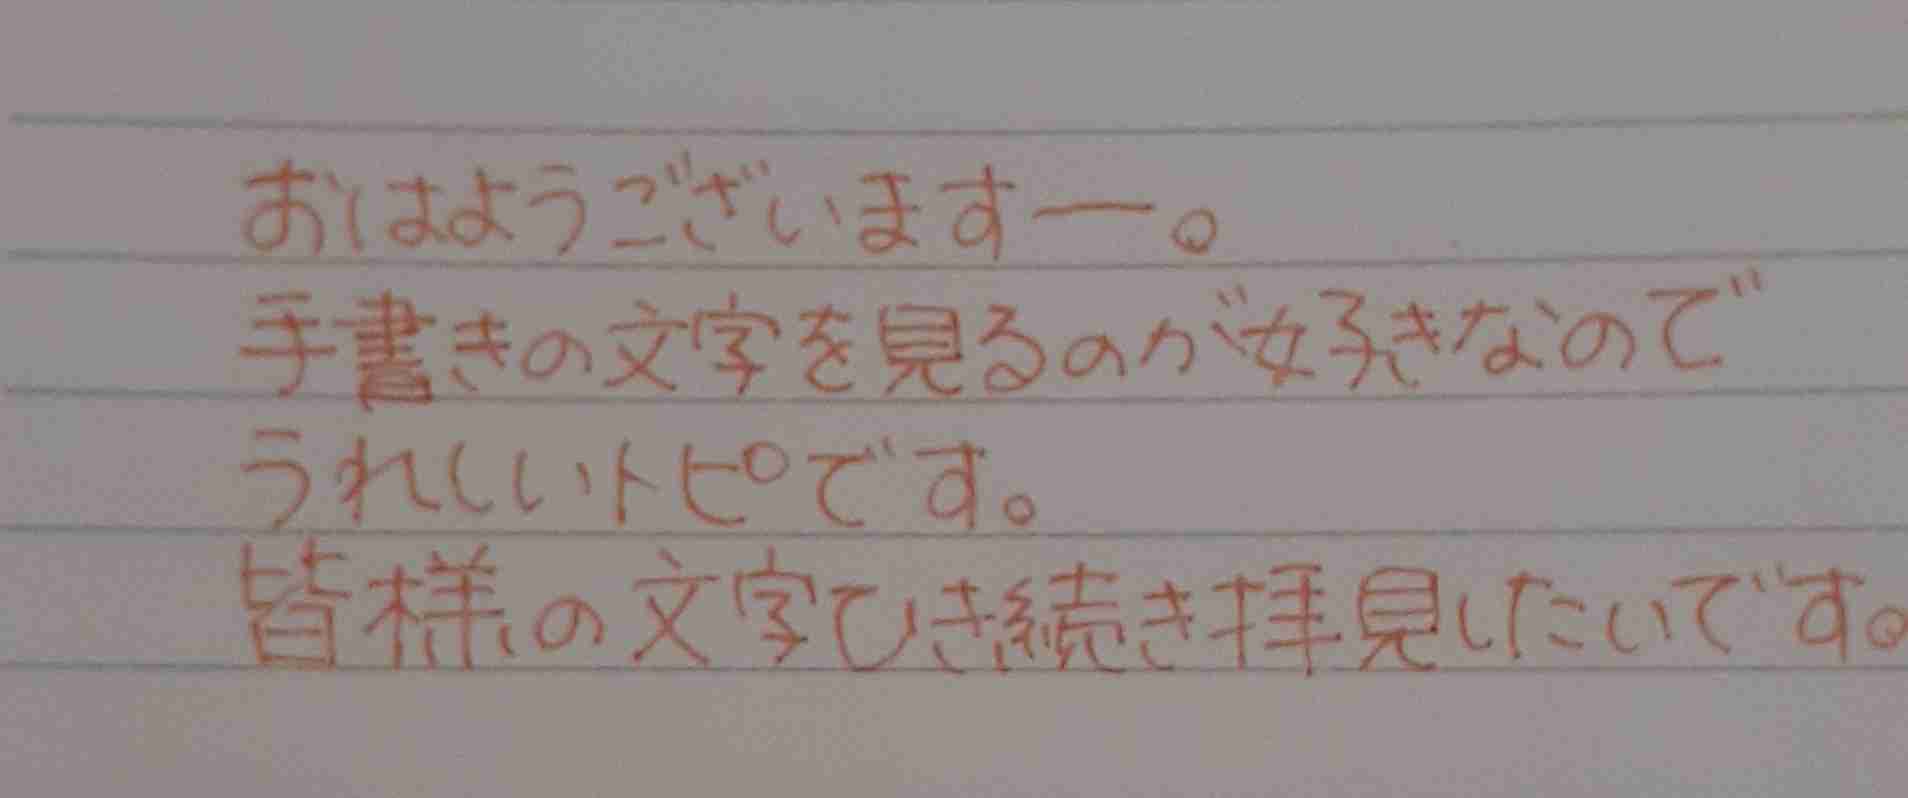 おはようございますー。
手書きの文字を見るのが好きなので
うれしいトピです。
皆様の文字ひき続き拝見したいです。